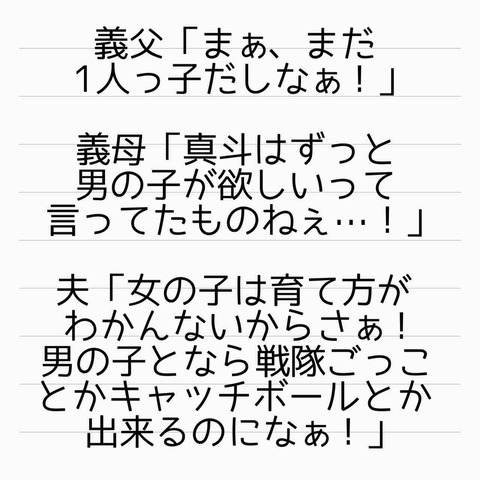 義父「まぁ、まだ
1人っ子だしなぁ！」
義母「真斗はずっと
男の子が欲しいって
言ってたものねぇ…！」
夫「女の子は育て方が
わかんないからさぁ！
男の子となら戦隊ごっこ
とかキャッチボールとか
出来るのになぁ！」